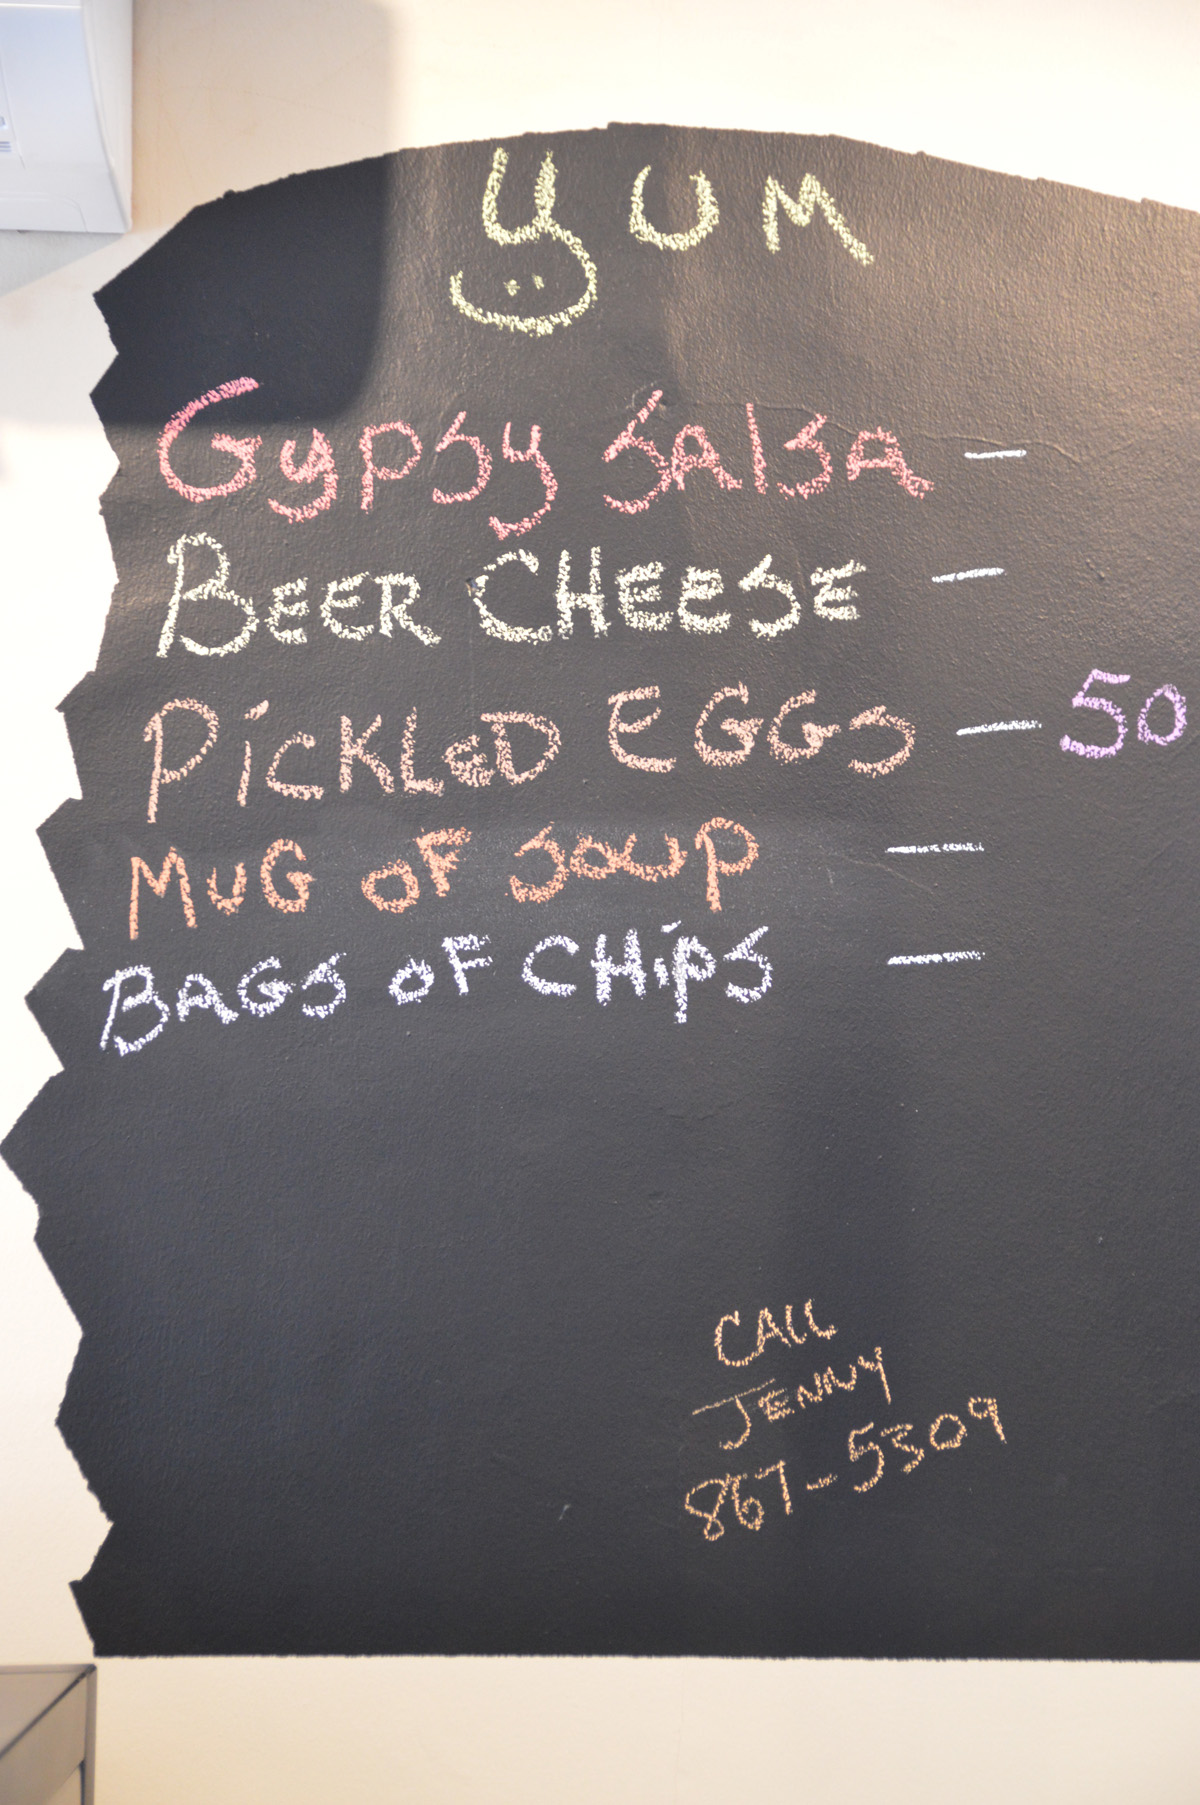 YUM
Gypsy Salsa —
BEER CHEESE —
PiCKLED EGGS — 50
MUG OF SOUP —
BAGS OF CHiPS —
CALL
JENNY
867-5309